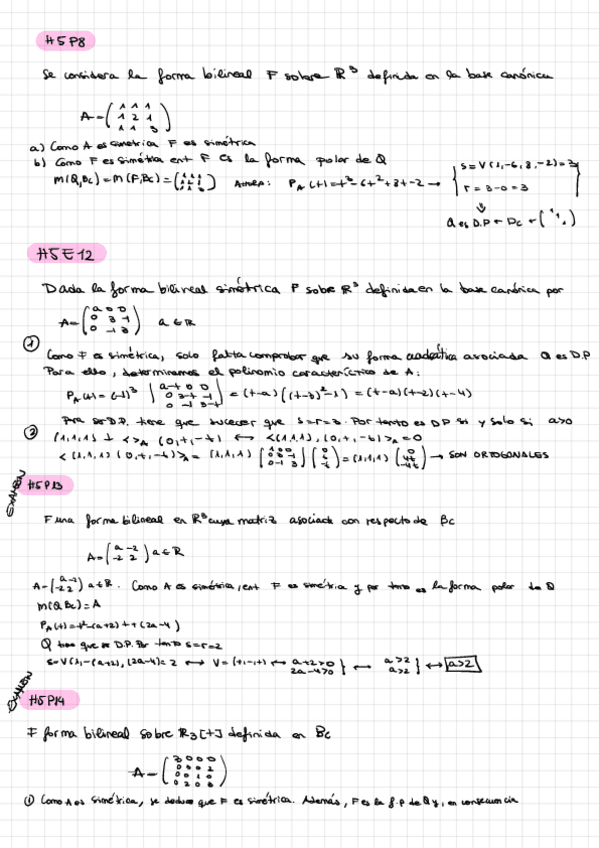 H5P8
Se considera la forma bilineal F sobre R³ definida en la base canónica
A = (1 1 1
1 2 1
1 1 3)
a) Como A es simétrica F es simétrica
b) Como F es simétrica ent F es la forma polar de Q
M(Q,Bc) = M(F,Bc) = (1 1 1 AHORA: PA(t) = t³-6t²+8t-2 → { s = V(1,-6,8,-2) = 3
r = 3-0 = 3 }
⇓
Q es D.P ← Dc ← (1 1 1)
H5E12
Dada la forma bilineal simétrica F sobre R³ definida en la base canónica por
A = (a 0 0
0 3 -1
0 -1 3) a ∈ R
① Como F es simétrica, solo falta comprobar que su forma cuadrática asociada Q es D.P
Para ello, determinamos el polinomio característico de A:
PA(t) = (-1)³ |a-t 0 0
0 3-t -1
0 -1 3-t| = (t-a)((t-3)²-1) = (t-a)(t-2)(t-4)
Para ser D.P. tiene que suceder que s=r=3. Por tanto es DP si y solo si a>0
② (1,1,1) ⊥ <>A (0,t,-t) ↔ <(1,1,1),(0,t,-t)>A = 0
<(1,1,1)(0,t,-t)>A = (1,1,1) (1 0 0
0 3 -1
0 -1 3) (0
t
-t) = (1,1,1) (0
4t
-4t) → SON ORTOGONALES
EXAMEN
H5P13
F una forma bilineal en R² cuya matriz asociada con respecto de Bc
A = (a -2
-2 2) a ∈ R
A = (a -2
-2 2) a ∈ R. Como A es simétrica, ent F es simétrica y por tanto es la forma polar de Q
M(Q,Bc) = A
PA(t) = t²-(a+2)t+(2a-4)
Q tiene que ser D.P. Por tanto s=r=2
s = V(1,-(a+2),(2a-4)) = 2 ↔ V = (+,-,+) ↔ a+2>0
2a-4>0 } ↔ a>2
a>2 } ↔ a>2
EXAMEN
H5P14
F forma bilineal sobre R3[t] definida en Bc
A = (3 0 0 0
0 0 0 2
0 0 1 0
0 2 0 0)
① Como A es simétrica, se deduce que F es simétrica. Además, F es la f.p de Q y, en consecuencia